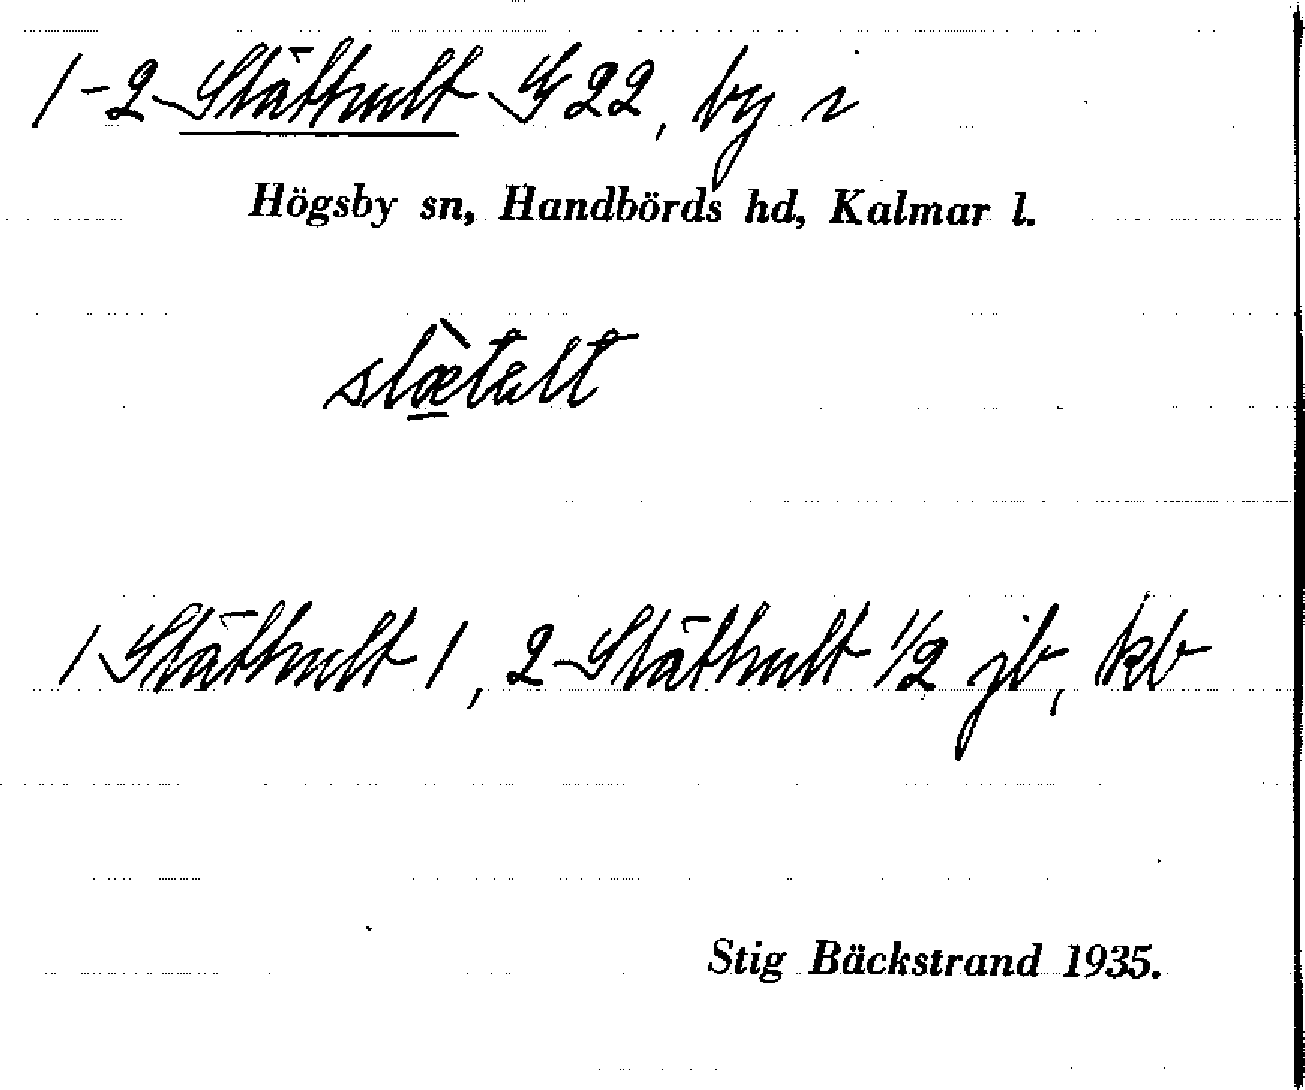 1-2 Släthult G 22, by i
Högsby sn, Handbörds hd, Kalmar l.
1 Släthult 1, 2 Släthult 1/2 jb, kb
Stig Bäckstrand 1935.